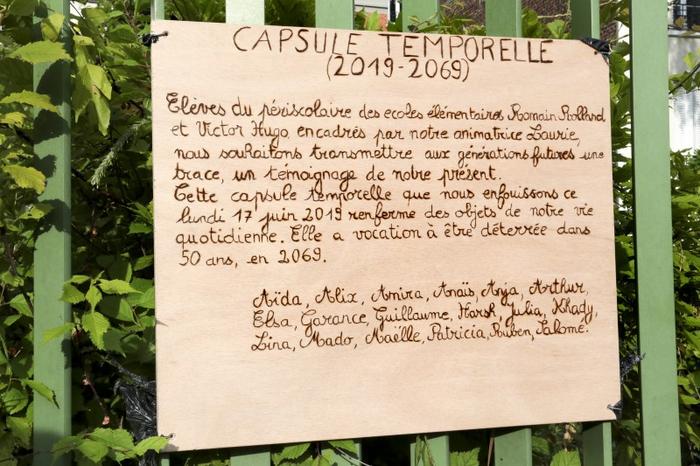 CAPSULE TEMPORELLE
(2019-2069)
Elèves du périscolaire des ecoles élémentaires Romain Rolland
et Victor Hugo, encadrés par notre animatrice Laurie,
nous souhaitons transmettre aux générations futures une
trace, un témoignage de notre présent.
Cette capsule temporelle que nous enfouissons ce
lundi 17 juin 2019 renferme des objets de notre vie
quotidienne. Elle a vocation à être déterrée dans
50 ans, en 2069.
Aïda, Alix, Amira, Anaïs, Anja, Arthur,
Elsa, Garance, Guillaume, Harsh, Julia, Khady,
Lina, Mado, Maëlle, Patricia, Ruben, Salomé.